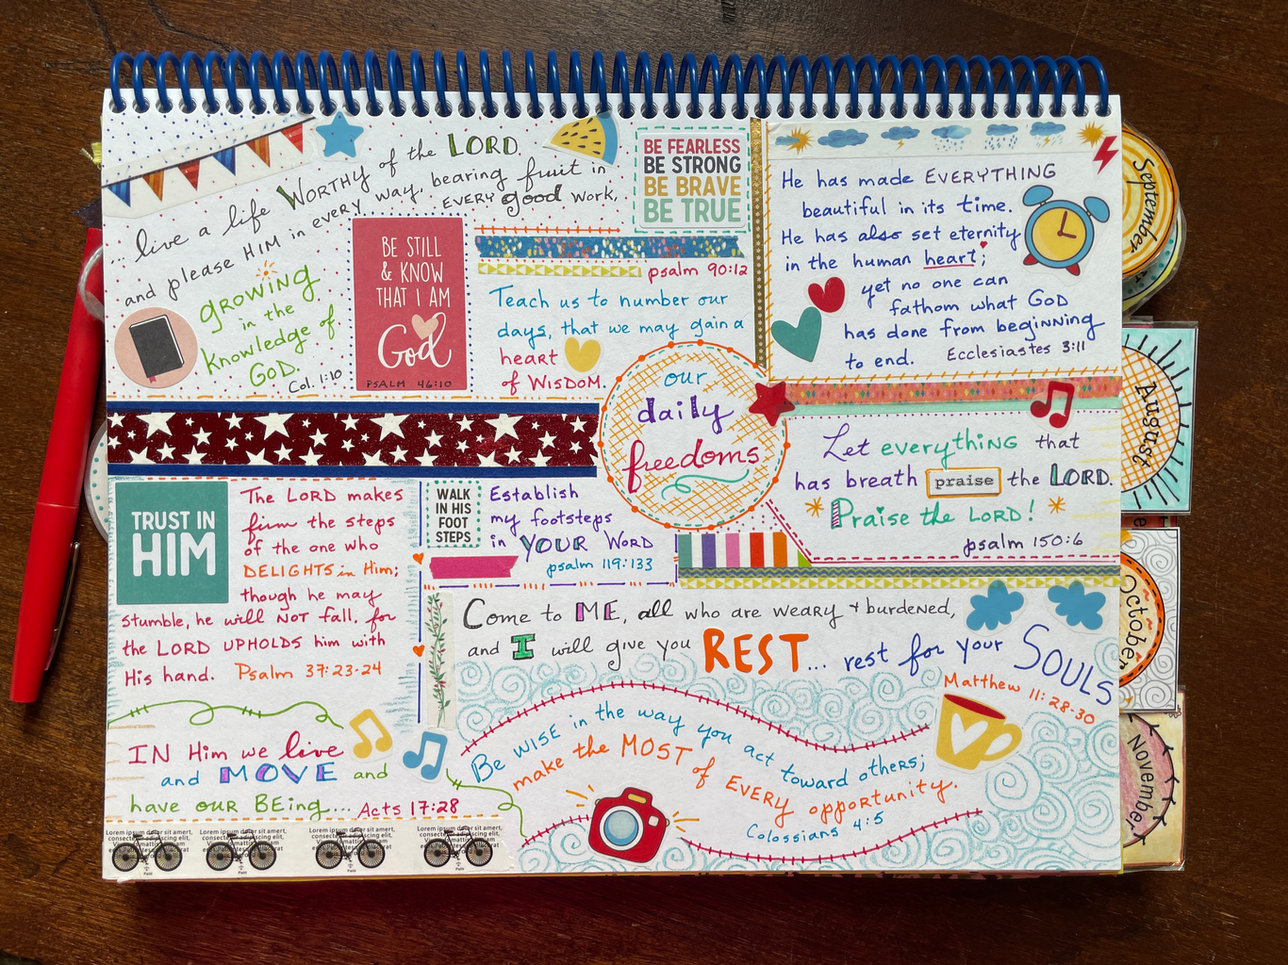 ... live a life WORTHY of the LORD
and please HIM in every way, bearing fruit in
EVERY good work,
growing
in the
knowledge of
GOD.
Col. 1:10
BE STILL
& KNOW
THAT I AM
God
PSALM 46:10
BE FEARLESS
BE STRONG
BE BRAVE
BE TRUE
psalm 90:12
Teach us to number our
days, that we may gain a
heart
of WISDOM.
He has made EVERYTHING
beautiful in its time.
He has also set eternity
in the human heart;
yet no one can
fathom what GOD
has done from beginning
to end. Ecclesiastes 3:11
our
daily
freedoms
Let everything that
has breath praise the LORD.
Praise the LORD!
psalm 150:6
TRUST IN
HIM
The LORD makes
firm the steps
of the one who
DELIGHTS in Him;
though he may
stumble, he will NOT fall, for
the LORD UPHOLDS him with
His hand. Psalm 37:23-24
WALK
IN HIS
FOOT
STEPS
Establish
my footsteps
in YOUR WORD
psalm 119:133
Come to ME, all who are weary + burdened,
and I will give you REST... rest for your SOULS
Matthew 11:28-30
IN Him we live
and MOVE and
have our BEing.... Acts 17:28
Be WISE in the way you act toward others;
make the MOST of EVERY opportunity.
Colossians 4:5
Lorem ipsum dolor sit amert,
Lorem ipsum dolor sit amert,
Lorem ipsum dolor sit amert,
Lorem ipsum dolor sit amert,
September
August
October
November